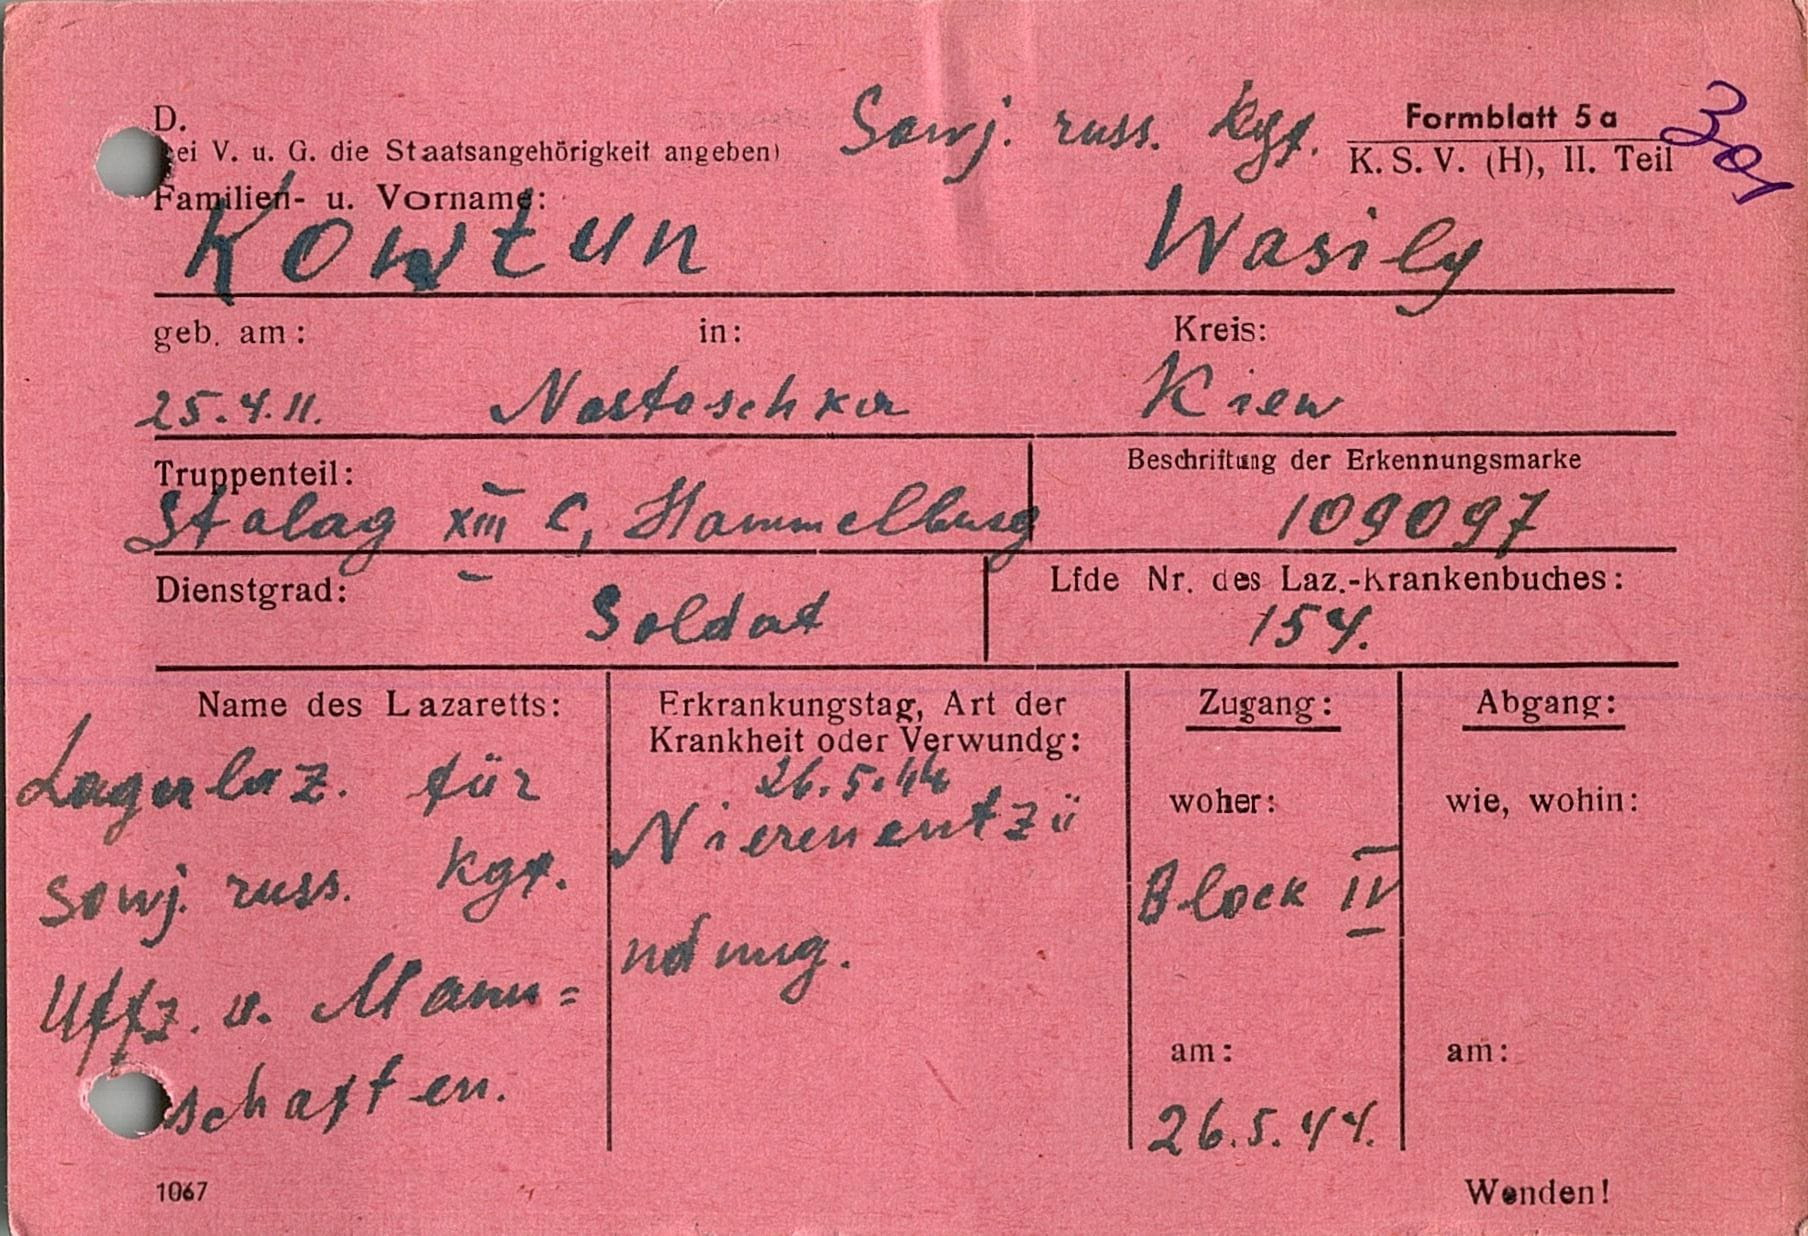 D.
ei V. u. G. die Staatsangehörigkeit angeben)
Sowj. russ. Kgf.
Formblatt 5a
K. S. V. (H), II. Teil
301
Familien- u. Vorname:
Kowtun Wasily
geb. am: in: Kreis:
25.4.11. Nastaschka Kiew
Truppenteil: Beschriftung der Erkennungsmarke
Stalag XIII C, Hammelburg 109097
Dienstgrad: Lfde Nr. des Laz.-Krankenbuches:
Soldat 154.
Name des Lazaretts:
Lagerlaz. für
sowj. russ. Kgf.
Uffz. u. Mann=
schaften.
Erkrankungstag, Art der
Krankheit oder Verwundg:
26.5.44
Nierenentzü
ndung.
Zugang:
woher:
Block IV
am:
26.5.44.
Abgang:
wie, wohin:
am:
1067
Wenden!